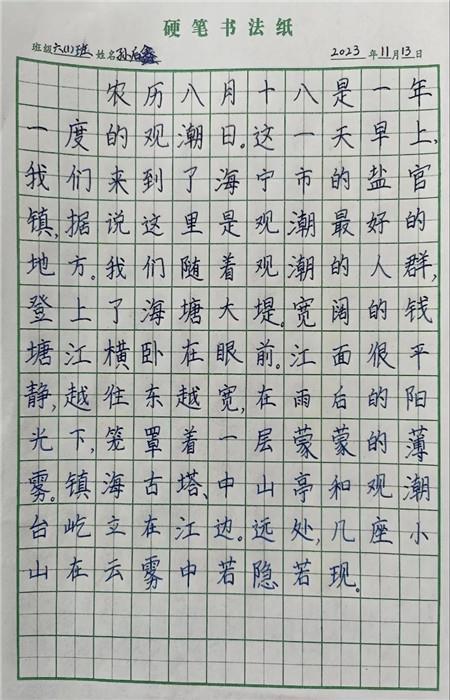 硬笔书法纸
班级 六(1)班 姓名 孙 鑫 2023 年 11 月 13 日
农历八月十八是一年
一度的观潮日。这一天早上,
我们来到了海宁市的盐官
镇,据说这里是观潮最好的
地方。我们随着观潮的人群,
登上了海塘大堤。宽阔的钱
塘江横卧在眼前。江面很平
静,越往东越宽,在雨后的阳
光下,笼罩着一层蒙蒙的薄
雾。镇海古塔、中山亭和观潮
台屹立在江边。远处,几座小
山在云雾中若隐若现。